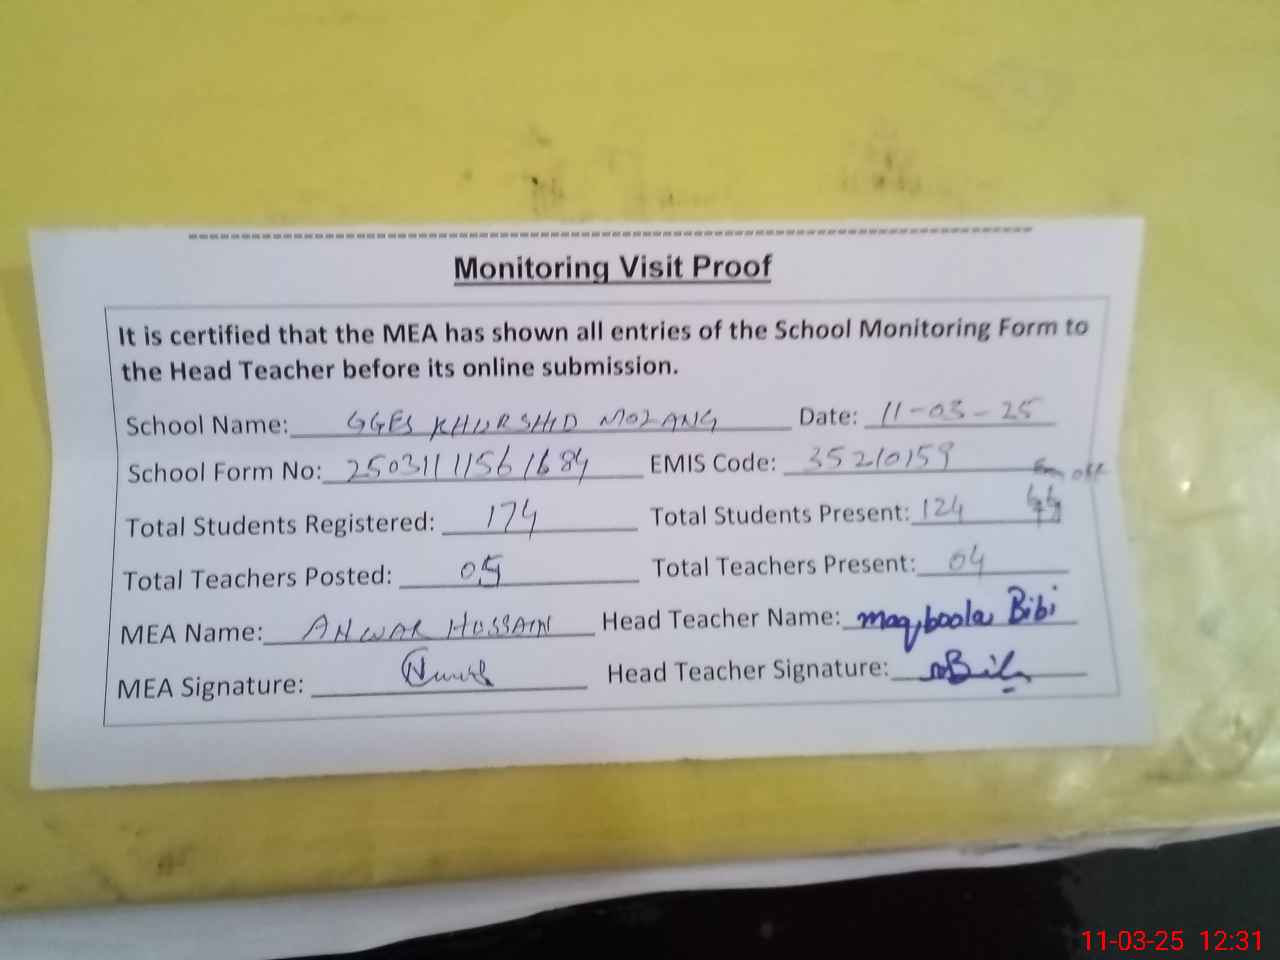 Monitoring Visit Proof
It is certified that the MEA has shown all entries of the School Monitoring Form to
the Head Teacher before its online submission.
School Name: GGES KHURSHID MOZANG Date: 11-03-25
School Form No: 25031111561684 EMIS Code: 35210159
Total Students Registered: 174 Total Students Present: 124
Total Teachers Posted: 05 Total Teachers Present: 04
MEA Name: ANWAR HUSSAIN Head Teacher Name: maqboola Bibi
MEA Signature: Head Teacher Signature:
11-03-25 12:31